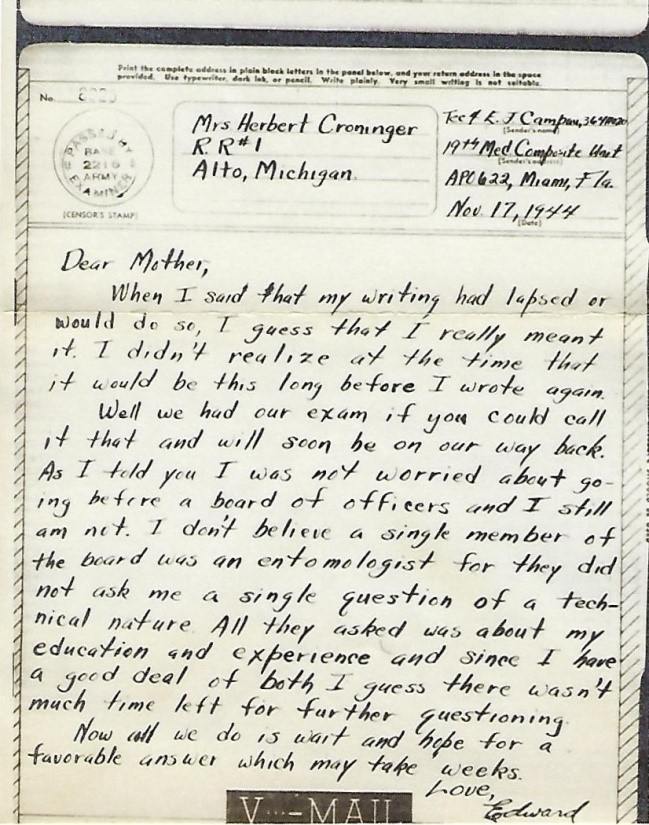 Print the complete address in plain block letters in the panel below, and your return address in the space
provided. Use typewriter, dark ink, or pencil. Write plainly. Very small writing is not suitable.
No.
PASSED BY
BASE
2216
ARMY
EXAMINER
(CENSOR'S STAMP)
Mrs Herbert Croninger
R R #1
Alto, Michigan
Tec 4 E. J Campau,
(Sender's name)
19th Med Composite Unit
(Sender's address)
APO 622, Miami, Fla.
Nov. 17, 1944
(Date)
Dear Mother,
When I said that my writing had lapsed or
would do so, I guess that I really meant
it. I didn't realize at the time that
it would be this long before I wrote again.
Well we had our exam if you could call
it that and will soon be on our way back.
As I told you I was not worried about go-
ing before a board of officers and I still
am not. I don't believe a single member of
the board was an entomologist for they did
not ask me a single question of a tech-
nical nature. All they asked was about my
education and experience and since I have
a good deal of both I guess there wasn't
much time left for further questioning.
Now all we do is wait and hope for a
favorable answer which may take weeks.
Love,
Edward
V···—MAIL